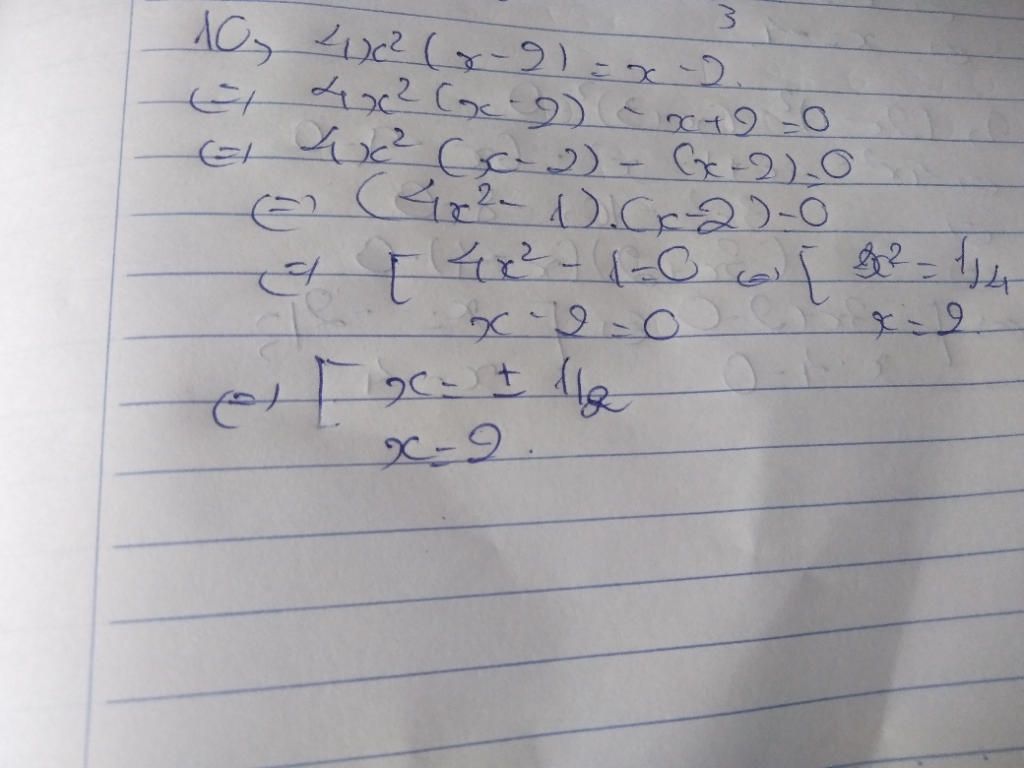 3
10, 4x² (x-2) = x - 2.
<=> 4x² (x-2) - x+2=0
<=> 4x² (x-2) - (x-2)=0
<=> (4x² - 1).(x-2)=0
<=> [ 4x² - 1=0 <=> [ x² = 1/4
x - 2 = 0 x = 2
<=> [ x = ± 1/2
x = 2.